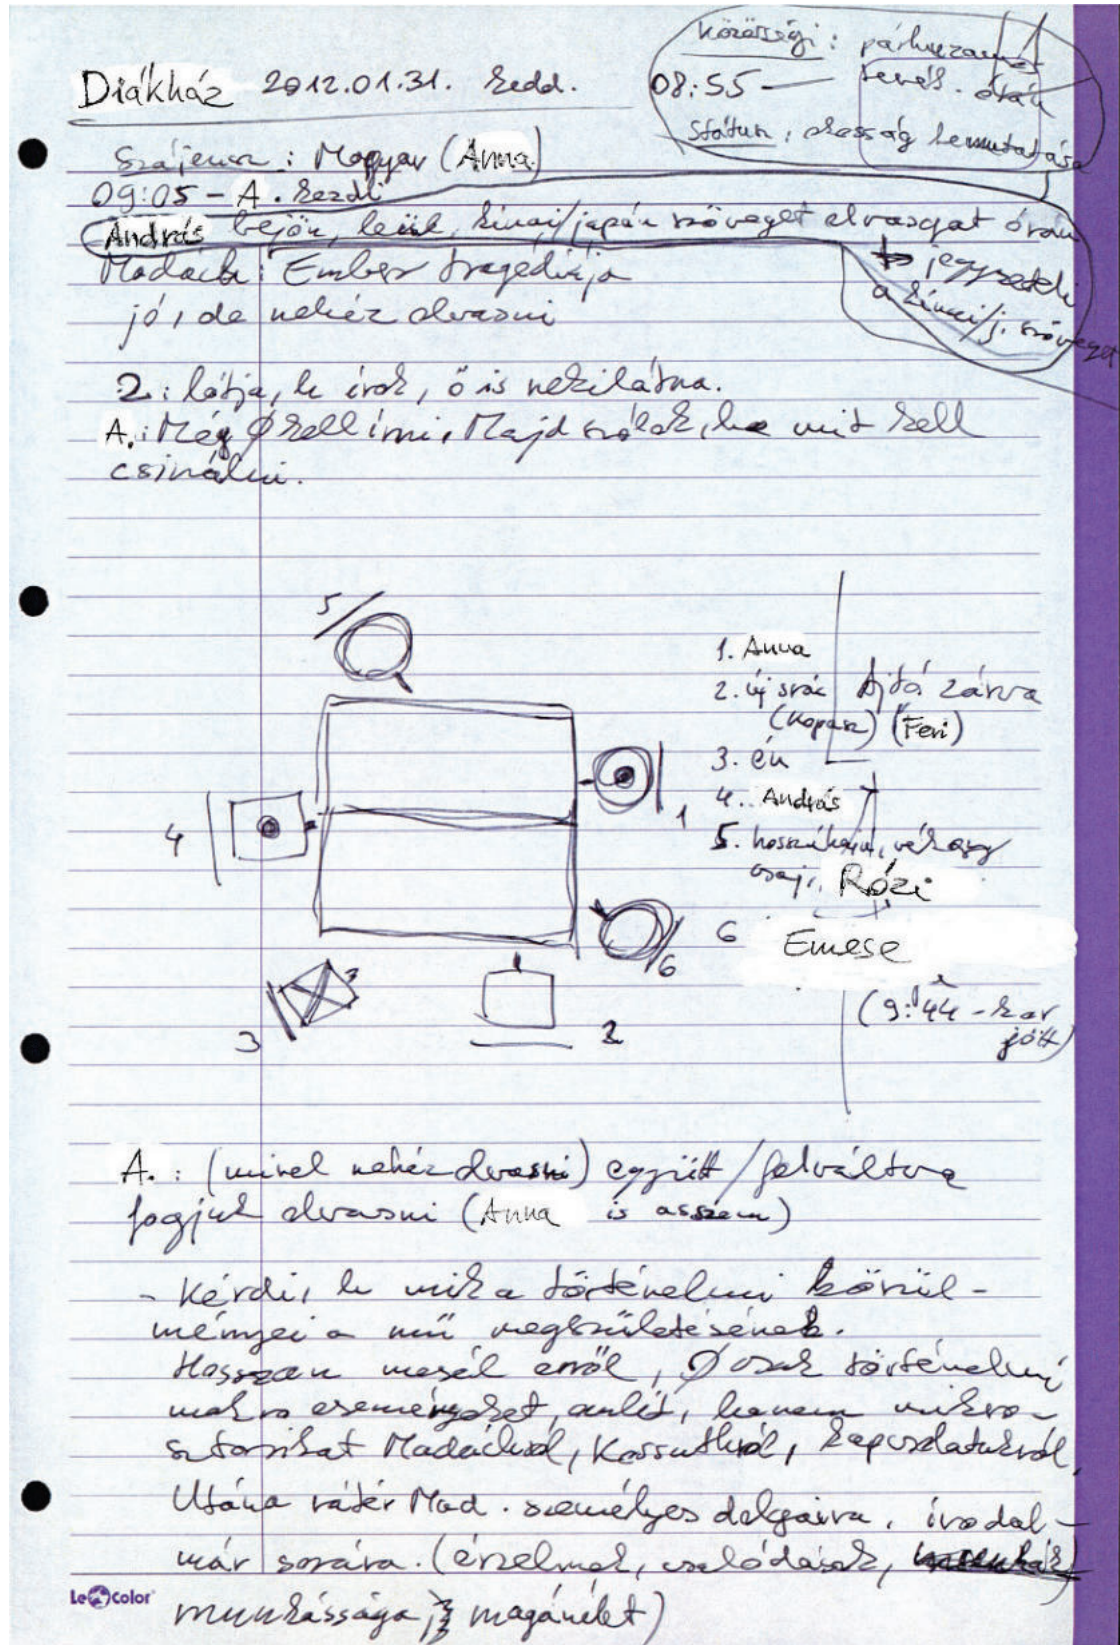 Közösségi: párhuzamos
Diákház 2012.01.31. kedd.
08:55 — tevék. órán
Státusz: okosság bemutatása
Magyar (Anna)
09:05 – A. kezdi
András bejön, leül, kínai/japán szöveget olvasgat órán
jegyzeteli
a kínai/j. szöveget
Madách: Ember tragédiája
jó, de nehéz olvasni
2.: látja, h írok, ő is nekilátna.
A.: Még Ø kell írni, Majd szólok, ha mit kell
csinálni.
5
1. Anna
2. új srác
(Kopasz) (Feri)
Ajtó zárva
3. én
4. András
5. hosszúhajú, vékony
csaj, Rózi
6 Emese
(9:44-kor
jött)
4
1
6
3
2
A.: (mivel nehéz olvasni) együtt/felváltva
fogjuk olvasni (Anna is asszem)
- Kérdi, h mik a történelmi körül-
ményei a mű megszületésének.
Hosszan mesél erről, Ø csak történelmi
makro eseményeket, említ, hanem mikro-
sztorikat Madáchról, Kossuthról, kapcsolatukról,
Utána rátér Mad. személyes dolgaira, irodal-
már sorára. (érzelmek, csalódások,
munkássága, magánélet)
LeColor